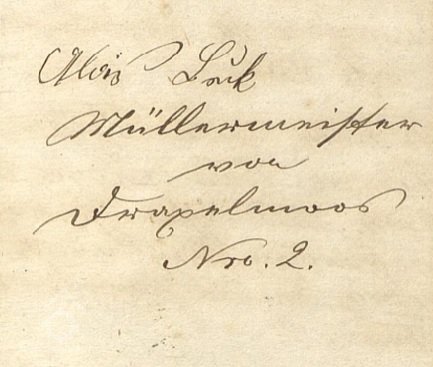 Alois
Müllermeister
von
Draxelmoos
Nro. 2.